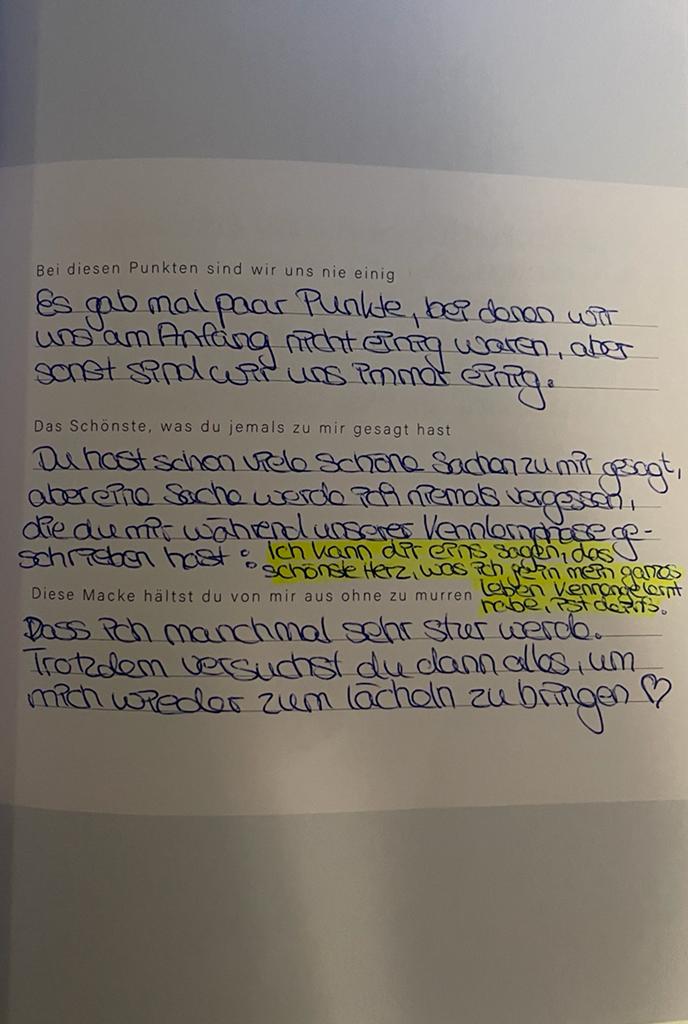 Bei diesen Punkten sind wir uns nie einig
Es gab mal paar Punkte, bei denen wir
uns am Anfang nicht einig waren, aber
sonst sind wir uns immer einig.
Das Schönste, was du jemals zu mir gesagt hast
Du hast schon viele schöne Sachen zu mir gesagt,
aber eine Sache werde ich niemals vergessen,
die du mir während unserer Kennlernphase ge-
schrieben hast: Ich kann dir eins sagen, das
schönste Herz, was ich je in mein ganzes
Leben kennengelernt
habe, ist deins.
Diese Macke hältst du von mir aus ohne zu murren
Dass ich manchmal sehr stur werde.
Trotzdem versuchst du dann alles, um
mich wieder zum lächeln zu bringen ♡